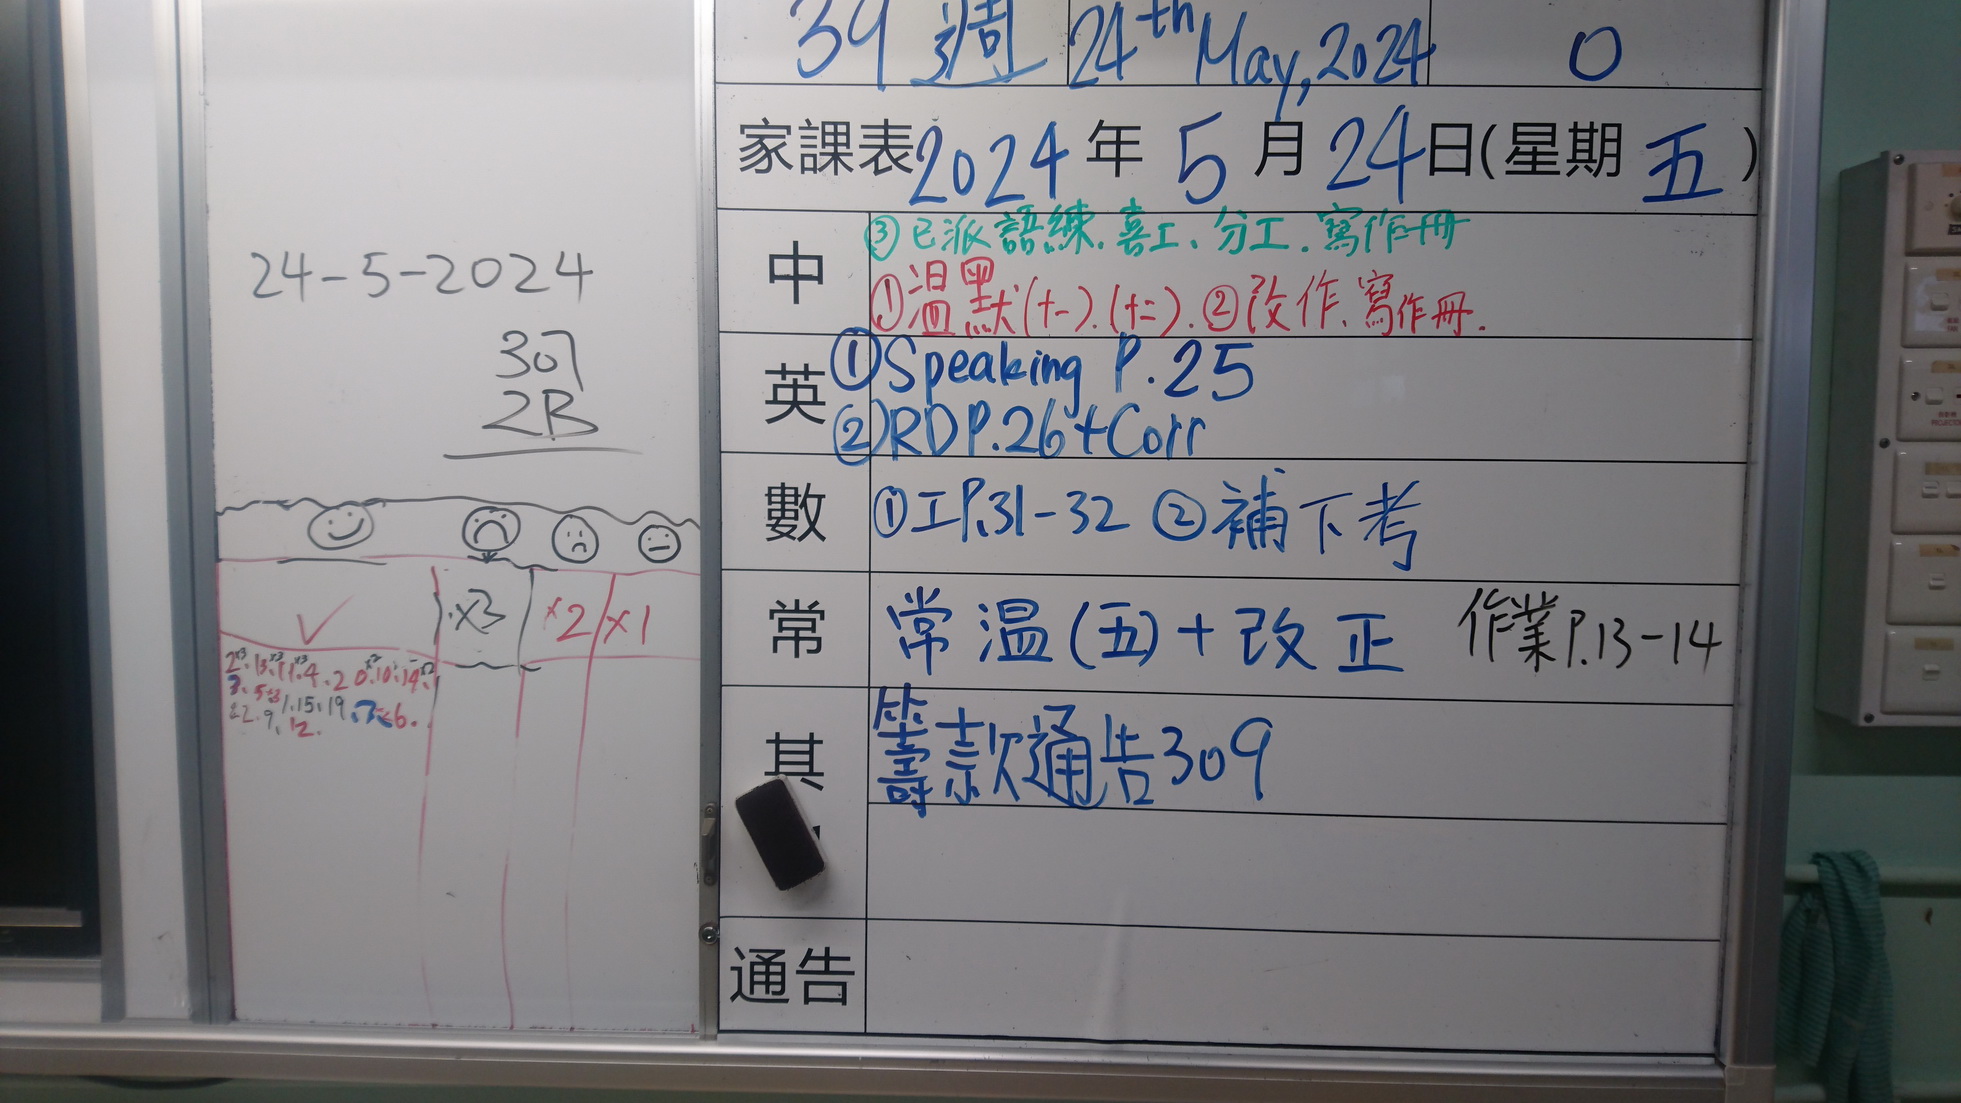 24-5-2024
307
2B
✓ ×3 ×2 ×1
39週 24th May, 2024 0
家課表 2024年5月24日(星期五)
中
③已派語練、喜工、分工、寫作冊
①溫默(十一).(十二).②改作、寫作冊.
英
①Speaking P.25
②RD P.26+Corr
數 ①工P.31-32 ②補下考
常 常溫(五)+改正 作業P.13-14
其 籌款通告309
通告